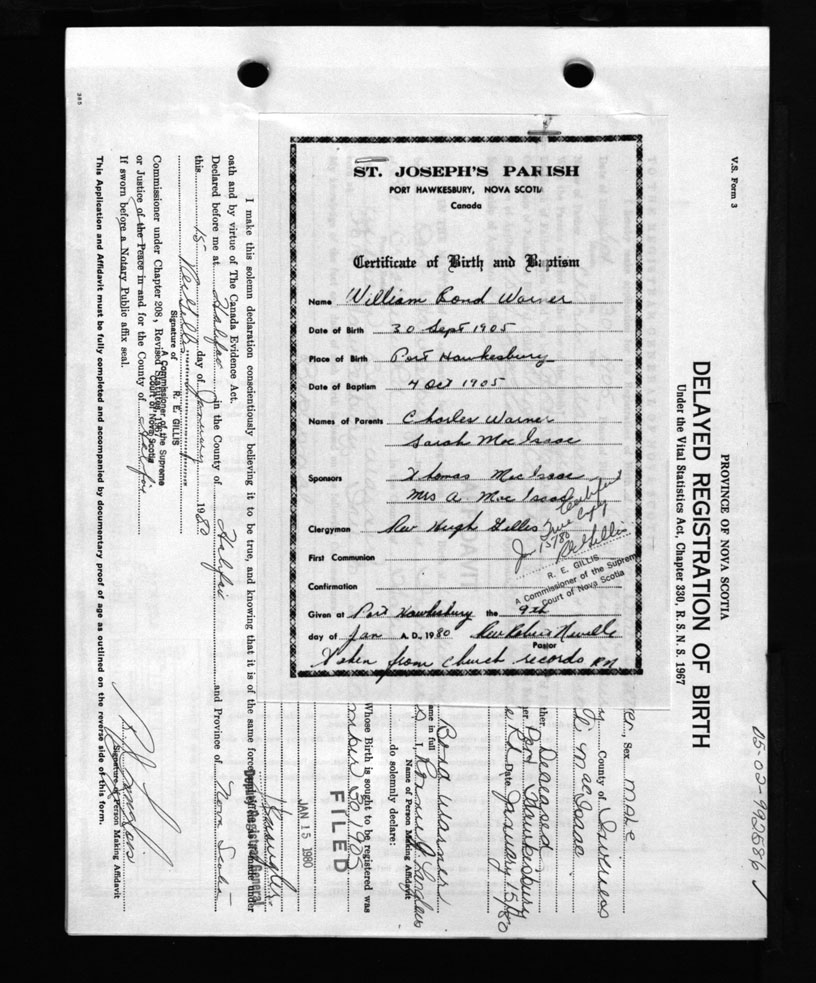 ST. JOSEPH'S PARISH
PORT HAWKESBURY, NOVA SCOTIA
Canada
Certificate of Birth and Baptism
Name William Bond Warner
Date of Birth 30 Sept 1905
Place of Birth Port Hawkesbury
Date of Baptism 4 Oct 1905
Names of Parents Charles Warner
Sarah Mac Isaac
Sponsors Thomas Mac Isaac
Mrs A. Mac Isaac
Clergyman Rev Hugh Gillis
Certified
True
Copy
Ja 15/80
R. E. GILLIS
A Commissioner of the Supreme
Court of Nova Scotia
First Communion
Confirmation
Given at Port Hawkesbury the 9th
day of Jan A.D., 1980 Rev Neville
Pastor
Taken from church records RN
V.S. Form 3
PROVINCE OF NOVA SCOTIA
DELAYED REGISTRATION OF BIRTH
Under the Vital Statistics Act, Chapter 330, R. S. N. S. 1967
05-02-992586
Sex male
County of Inverness
MacIsaac
Deceased
Port Hawkesbury
Date January 15/80
Bond Warner
ame in full
I,
Name of Person Making Affidavit
do solemnly declare:
Whose Birth is sought to be registered was
30 1905
FILED
JAN 15 1980
Deputy Registrar General
I make this solemn declaration conscientiously believing it to be true, and knowing that it is of the same force
made under
oath and by virtue of The Canada Evidence Act.
Declared before me at Halifax in the County of Halifax and Province of Nova Scotia
this 15 day of January 1980
Signature of
R. E. GILLIS
A Commissioner of the Supreme
Court of Nova Scotia
Commissioner under Chapter 208, Revised Statutes, 1967
or Justice of the Peace in and for the County of Halifax
If sworn before a Notary Public affix seal.
Signature of Person Making Affidavit
This Application and Affidavit must be fully completed and accompanied by documentary proof of age as outlined on the reverse side of this form.
385